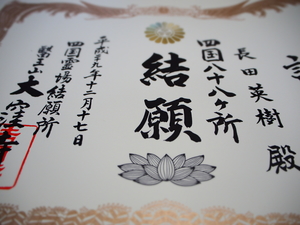 長田英樹 殿
四国八十八ヶ所
結願
平成十九年十二月十七日
四国霊場結願所
醫王山 大窪寺